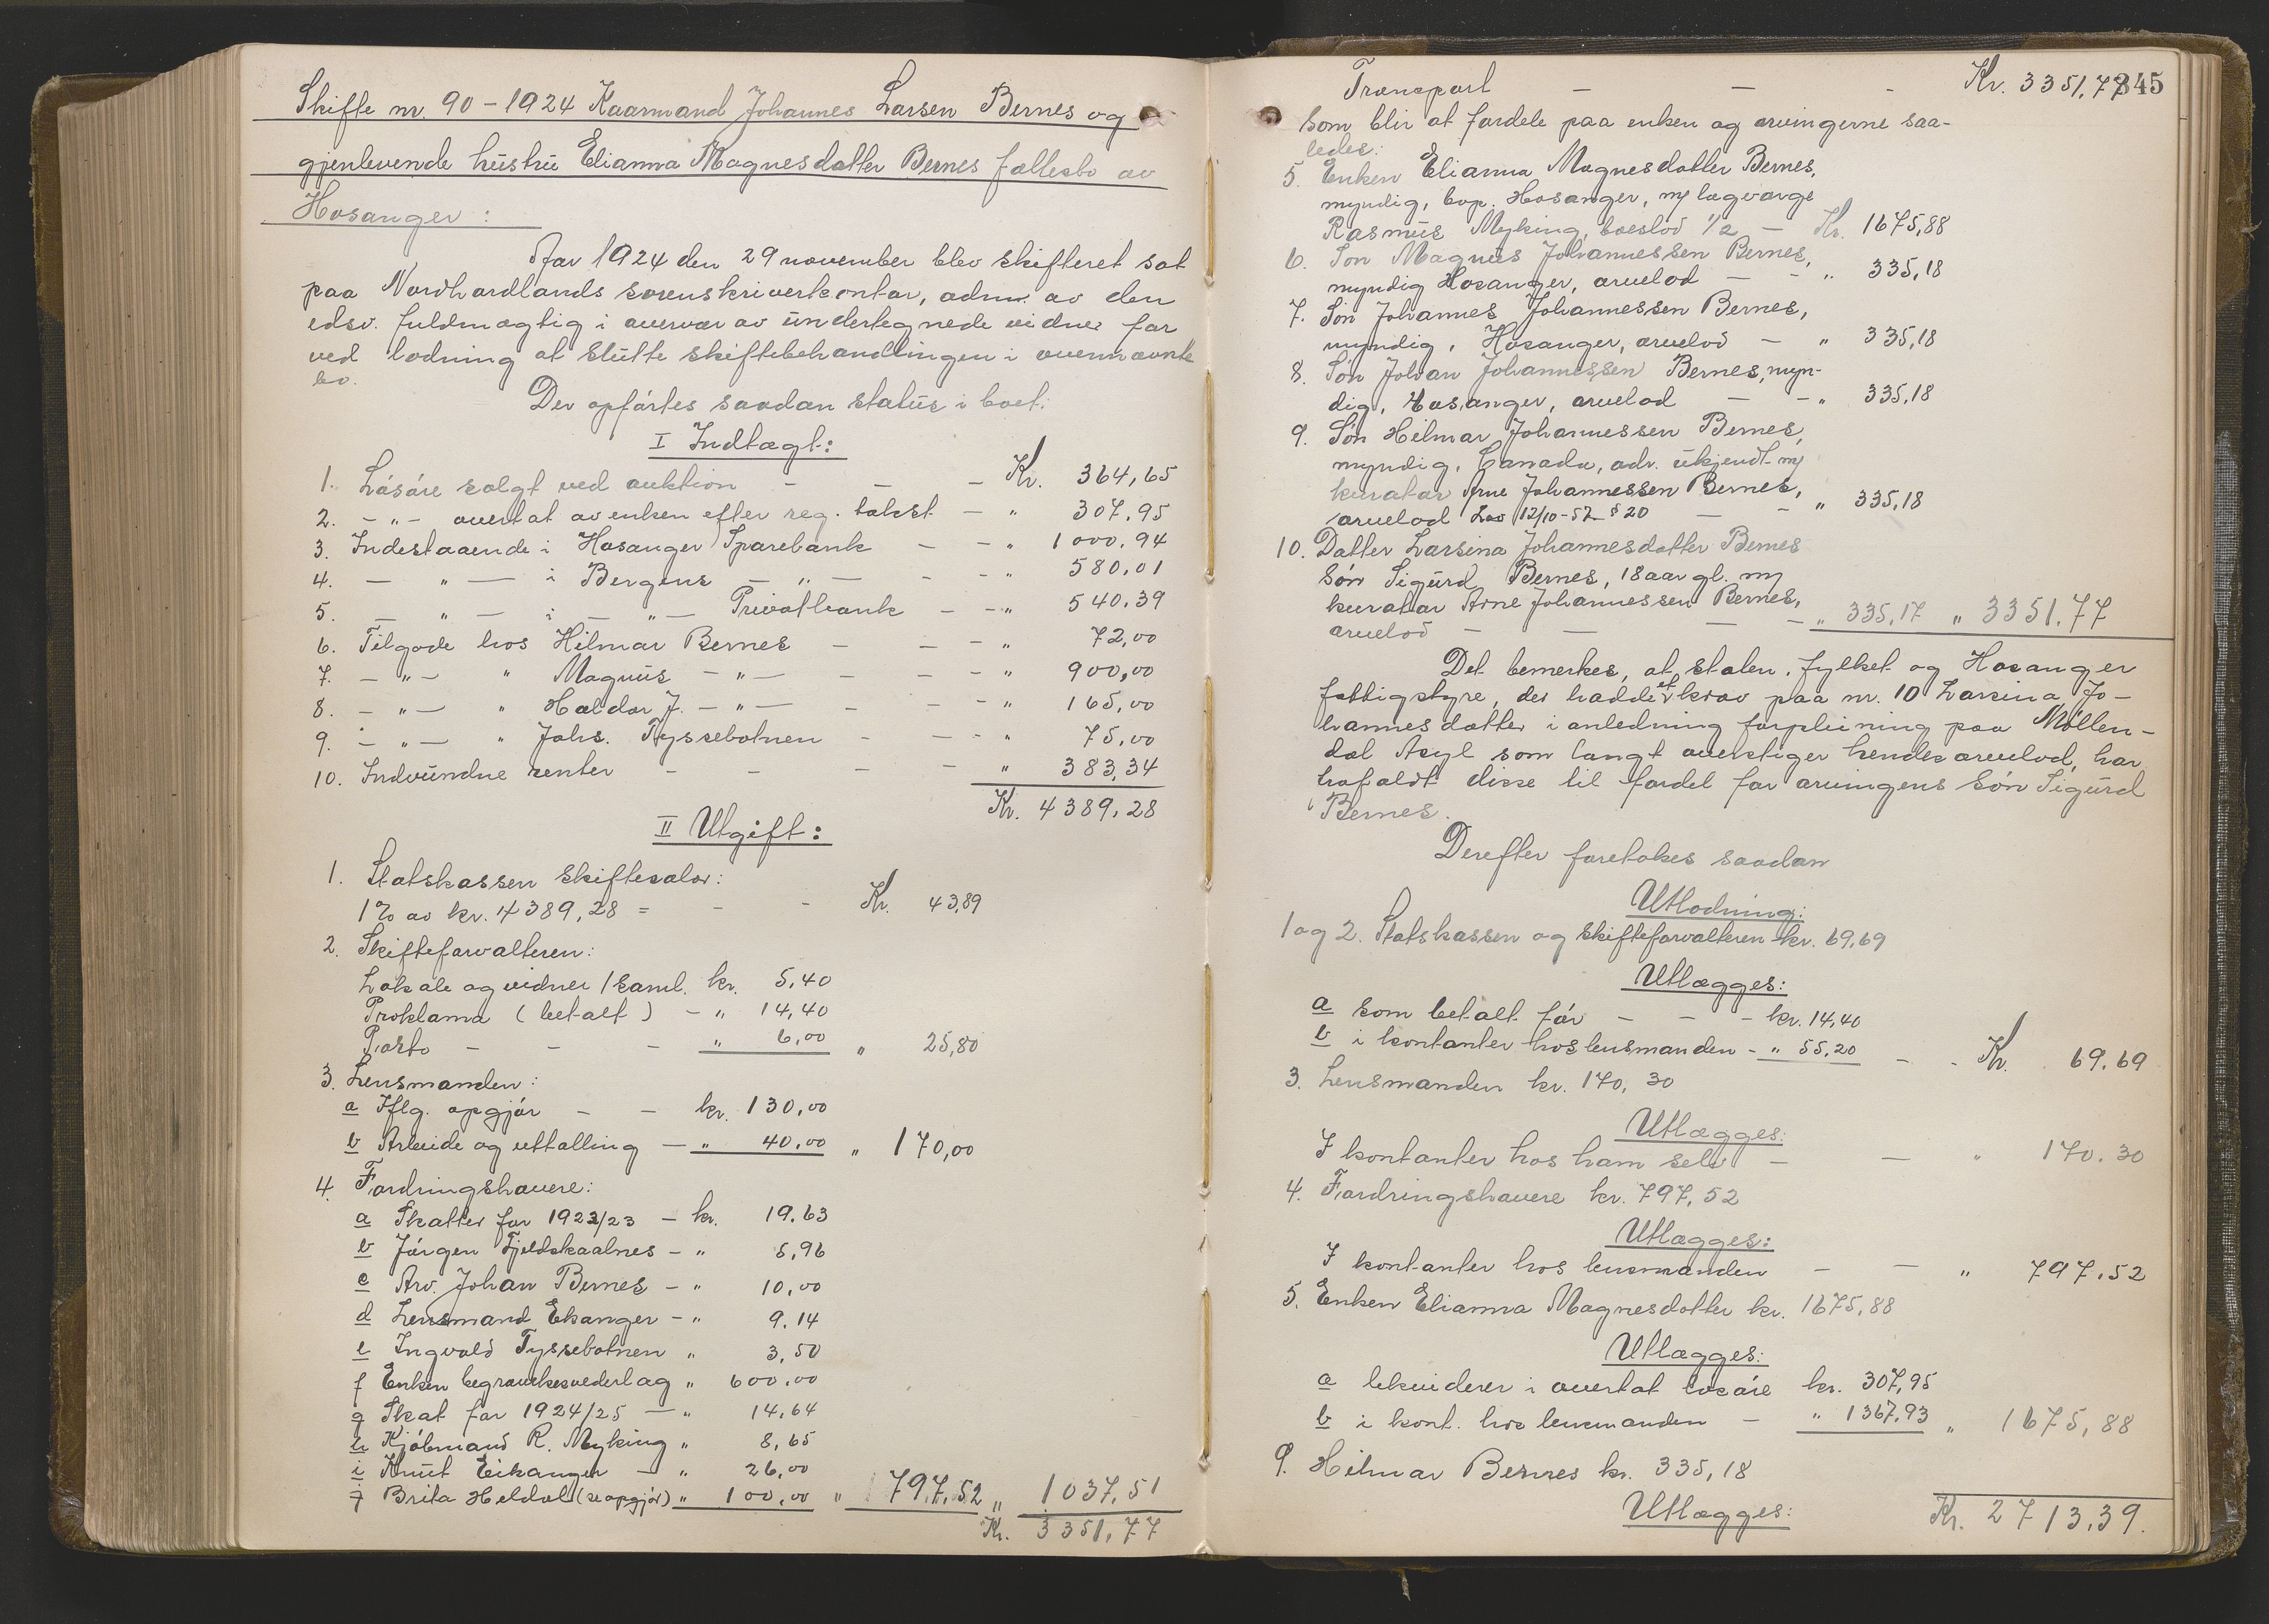 Skifte nr. 90 - 1924 Kaarmand Johannes Larsen Bernes og
gjenlevende hustru Elianna Magnesdatter Bernes fællesbo av
Hosanger :
Aar 1924 den 29 november blev skifteret sat
paa Nordhordlands sorenskriverkontor, adm. av den
edsv. fuldmægtig i overvær av undertegnede vidner for
ved lodning at slutte skiftebehandlingen i ovennævnte
bo.
Der opførtes saadan status i boet:
I Indtægt:
1. Løsøre solgt ved auktion - - - Kr. 364,65
2. - " - overtat av enken efter reg. takst - " 307.95
3. Indestaaende i Hosanger Sparebank - - " 1000.94
4. - " - i Bergens - " - - - " 580.01
5. - " - i - " - Privatbank - - " 540.39
6. Tilgode hos Hilmar Bernes - - - " 72,00
7. - " - " Magnus - " - - - - " 900,00
8. - " - " Haldor J. - " - - - - " 165,00
9. - " - " Johs. Tyssebotnen - - - " 75,00
10. Indvundne renter - - - - " 383,34
Kr. 4389,28
II Utgift:
1. Statskassen skiftesalær:
1% av kr. 4389,28 = - - Kr. 43,89
2. Skifteforvalteren:
Lokale og vidner 1 saml. kr. 5,40
Proklama (betalt) - " 14,40
Porto - - - " 6,00 " 25,80
3. Lensmanden:
a Iflg. opgjør - - kr. 130,00
b Arbeide og uttælling - " 40,00 " 170,00
4. Fordringshavere:
a Skatter for 1922/23 - kr. 19.63
b Jørgen Fjeldskaalnes - " 5,96
c Arv. Johan Bernes - " 10,00
d Lensmand Ekanger - " 9.14
e Ingvald Tyssebotnen " 3,50
f Enken begravelsesvederlag " 600.00
g Skat for 1924/25 - " 14,64
h Kjøbmand R. Myking " 8,65
i Knut Eikanger - " 26,00
j Brita Heldal (se opgjør) " 100,00 " 797,52 " 1037,51
Kr. 3351,77
Transport - - - Kr. 3351,77
345
som blir at fordele paa enken og arvingerne saa-
ledes:
5. Enken Elianna Magnesdatter Bernes,
myndig, bop. Hosanger, m/ lagværge
Rasmus Myking, boeslod 1/2 - Kr. 1675,88
6. Søn Magnus Johannessen Bernes,
myndig Hosanger, arvelod - - " 335,18
7. Søn Johannes Johannessen Bernes,
myndig, Hosanger, arvelod - " 335,18
8. Søn Johan Johannessen Bernes, myn-
dig, Hosanger, arvelod - - " 335,18
9. Søn Hilmar Johannessen Bernes,
myndig, Canada, adr. ukjendt m/
kurator Arne Johannessen Bernes,
arvelod Lov 12/10-57 § 20 - - " 335,18
10. Datter Larsina Johannesdatter Bernes
søn Sigurd Bernes, 18 aar gl. m/
kurator Arne Johannessen Bernes,
arvelod - - - - " 335,17 " 3351.77
Det bemerkes, at staten, fylket og Hosanger
fattigstyre, der hadde et krav paa nr. 10 Larsina Jo-
hannesdatter i anledning forpleining paa Møllen-
dal Asyl som langt overstiger hendes arvelod, har
frafaldt disse til fordel for arvingens søn Sigurd
Bernes.
Derefter foretokes saadan
Utlodning:
1 og 2. Statskassen og skifteforvalteren kr. 69,69
Utlægges:
a som betalt før - - - kr. 14,40
b i kontanter hos lensmanden - " 55,20 - - Kr. 69.69
3. Lensmanden kr. 170,30
Utlægges:
I kontanter hos ham selv - - " 170.30
4. Fordringshavere kr. 797,52
Utlægges:
I kontanter hos lensmanden - - " 797.52
5. Enken Elianna Magnesdatter kr. 1675,88
Utlægges:
a likviderer i overtat løsøre kr. 307,95
b i kont. hos lensmanden - " 1367,93 " 1675,88
9. Hilmar Bernes kr. 335,18
Utlægges: Kr. 2713,39.